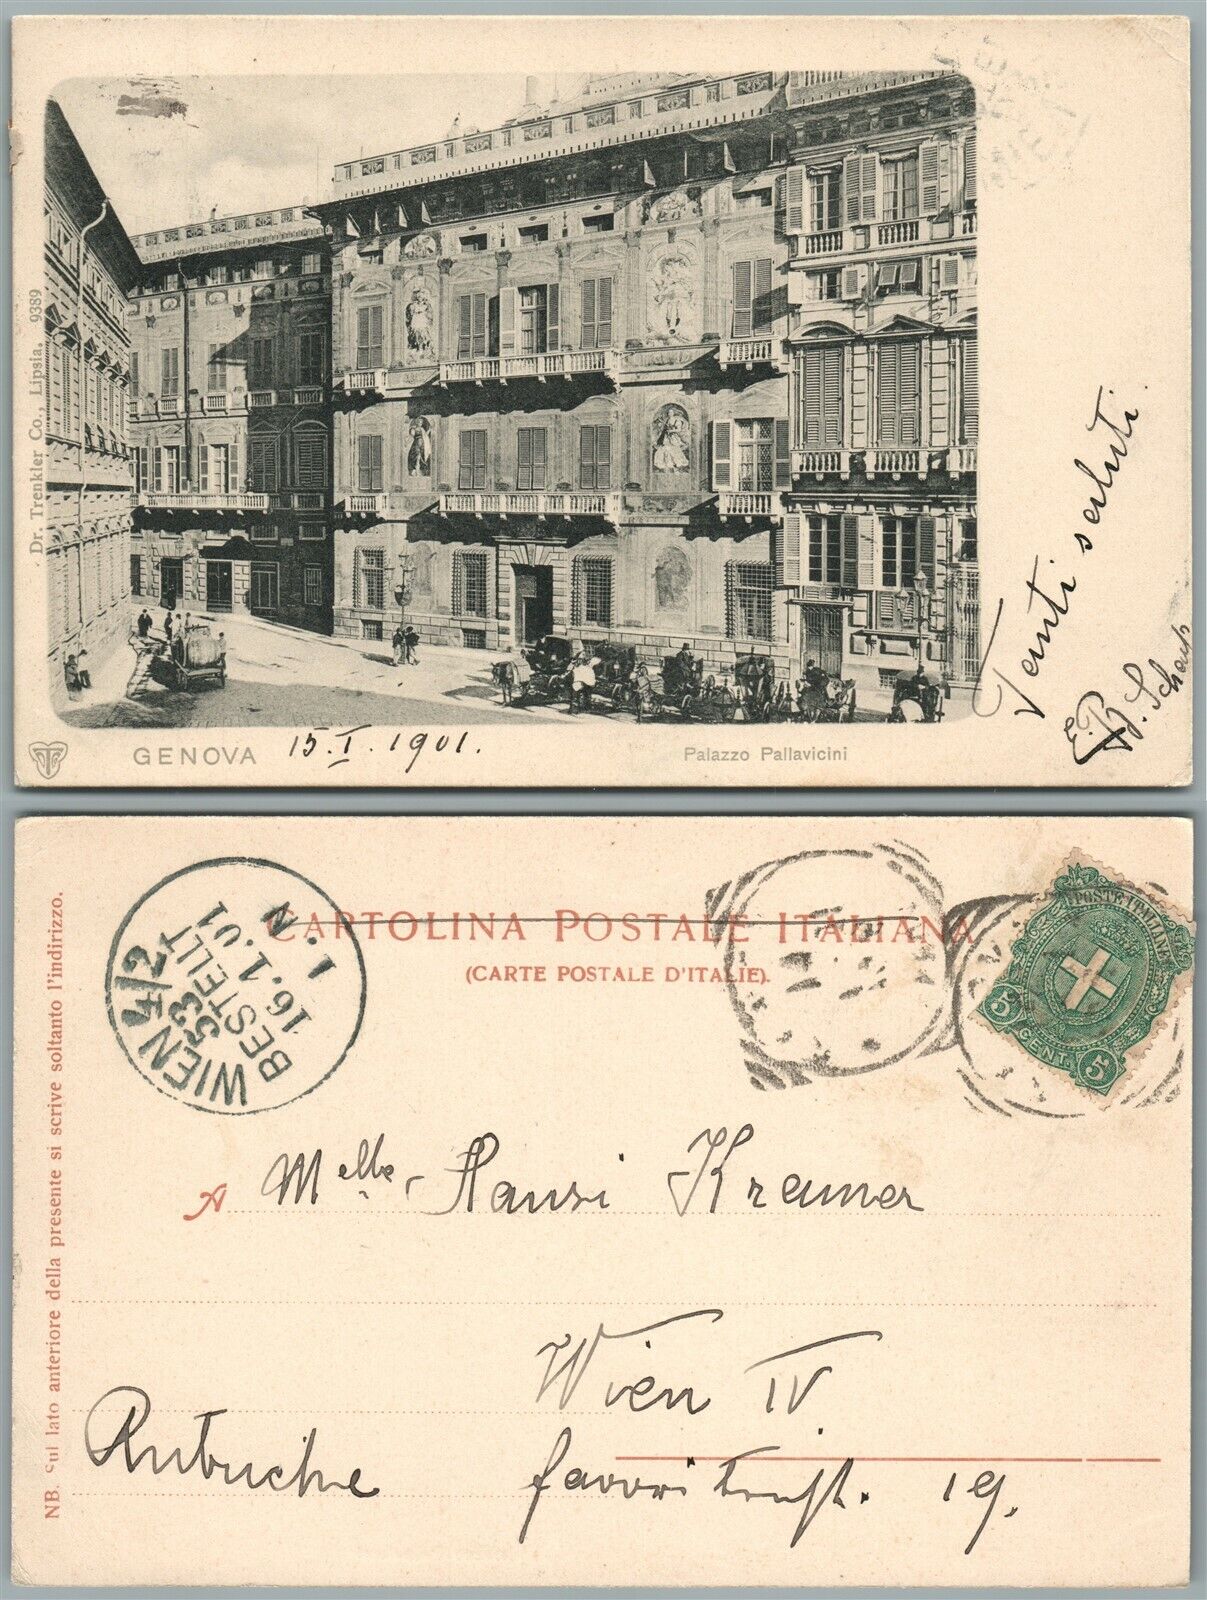 Dr. Trenkler Co., Lipsia. 9389
GENOVA
15. I. 1901.
Palazzo Pallavicini
Tanti saluti.
CARTOLINA POSTALE ITALIANA
(CARTE POSTALE D'ITALIE).
NB. Sul lato anteriore della presente si scrive soltanto l'indirizzo.
WIEN 4/2
53
BESTELLT
16.1.01
1. N
POSTE ITALIANE
5 CENT. 5
A Melle Hansi Kramer
Wien IV.
Autriche
Favoritenst. 19.